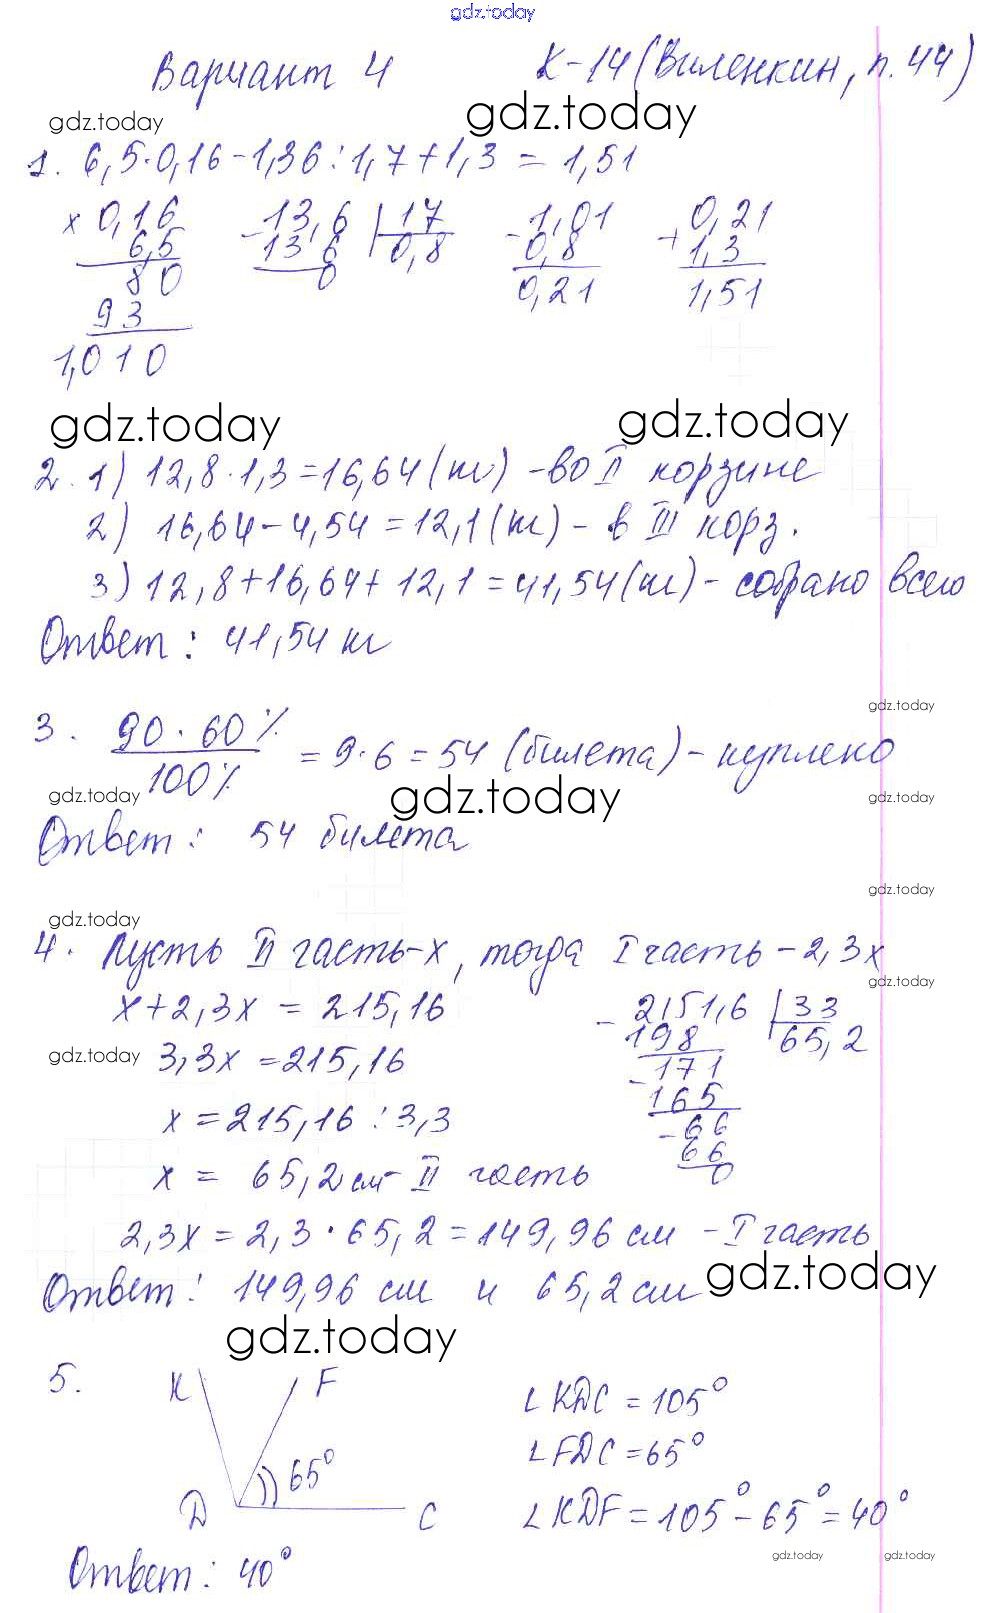 gdz.today
Вариант 4 К-14 (Виленкин, п.44)
gdz.today gdz.today
1. 6,5·0,16-1,36:1,7+1,3 = 1,51
× 0,16 - 13,6 | 17 - 1,01 + 0,21
6,5 13 6 0,8 0,8 1,3
80 0 0,21 1,51
93
1,010
gdz.today gdz.today
2. 1) 12,8·1,3=16,64 (кг) - во II корзине
2) 16,64-4,54=12,1 (кг) - в III корз.
3) 12,8+16,64+12,1=41,54 (кг) - собрано всего
Ответ: 41,54 кг
gdz.today
3. 90·60% / 100% = 9·6 = 54 (билета) - куплено
gdz.today gdz.today gdz.today
Ответ: 54 билета
gdz.today
gdz.today
4. Пусть II часть-х, тогда I часть - 2,3х
gdz.today
х+2,3х = 215,16 - 2151,6 | 33
198 65,2
gdz.today 3,3х = 215,16 - 171
165
х = 215,16 : 3,3 - 66
66
х = 65,2 см - II часть 0
2,3х = 2,3·65,2 = 149,96 см - I часть
gdz.today
Ответ: 149,96 см и 65,2 см
gdz.today
5. К F ∠KDC = 105°
65° ∠FDC = 65°
D C ∠KDF = 105° - 65° = 40°
gdz.today gdz.today
Ответ: 40°